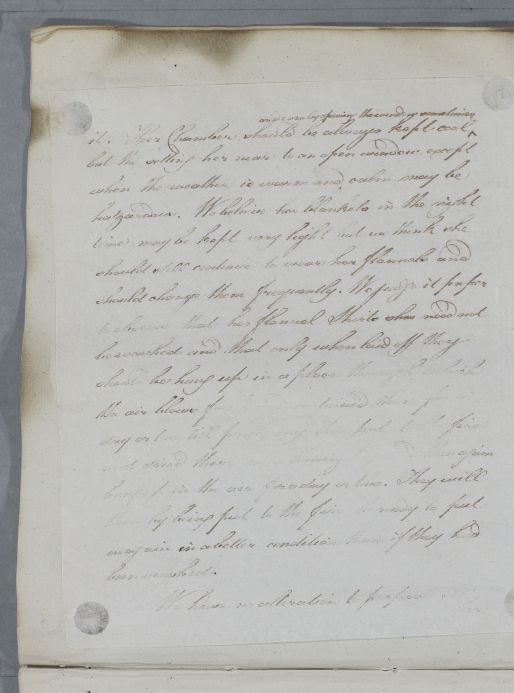 and even by opening the window sometimes
it. Her Chamber should be always kept cool,
but the setting her near to an open window except
when the weather is warm and calm may be
hazardous. We believe her blankets in the night
time may be kept very light but we think she
should still continue to wear her flannels and
should change them frequently. We judge it proper
to observe that her flannel Shirts need not
be washed and that only when laid off they
should be hung up in a place through which
the air blows
day or two till put to the fire
and dried there again
hung up in the air for a day or two. They will
then by being put to the fire be ready to put
on again in a better condition than if they had
been washed.
We have no alteration to propose